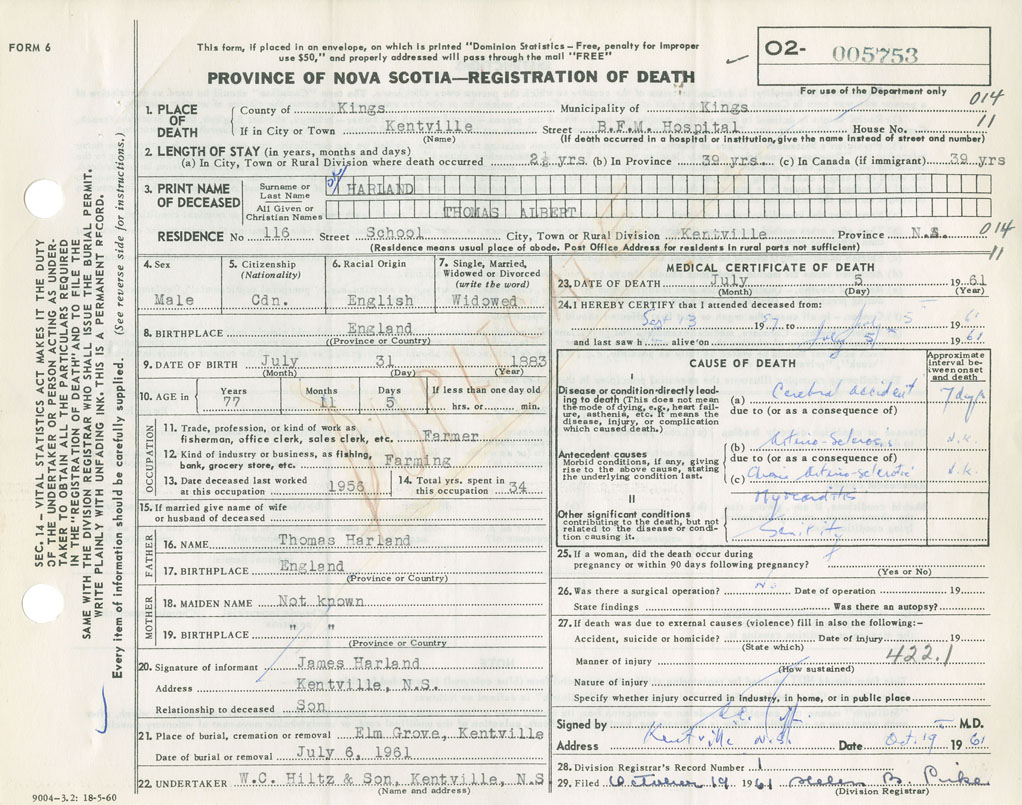 FORM 6
This form, if placed in an envelope, on which is printed "Dominion Statistics – Free, penalty for improper
use $50," and properly addressed will pass through the mail "FREE"
PROVINCE OF NOVA SCOTIA—REGISTRATION OF DEATH
O2- 005753
For use of the Department only
014
11
1. PLACE OF DEATH
County of Kings Municipality of Kings
If in City or Town Kentville Street B.F.M. Hospital House No.
(Name) (If death occurred in a hospital or institution, give the name instead of street and number)
2. LENGTH OF STAY (in years, months and days)
(a) In City, Town or Rural Division where death occurred 2½ yrs (b) In Province 39 yrs. (c) In Canada (if immigrant) 39 yrs
3. PRINT NAME OF DECEASED
Surname or Last Name HARLAND
All Given or Christian Names THOMAS ALBERT
RESIDENCE No 116 Street School City, Town or Rural Division Kentville Province N.S.
014
11
(Residence means usual place of abode. Post Office Address for residents in rural parts not sufficient)
4. Sex
Male
5. Citizenship
(Nationality)
Cdn.
6. Racial Origin
English
7. Single, Married,
Widowed or Divorced
(write the word)
Widowed
8. BIRTHPLACE England
((Province or Country)
9. DATE OF BIRTH July 31 1883
(Month) (Day) (Year)
10. AGE in
Years 77
Months 11
Days 5
If less than one day old
hrs. or min.
OCCUPATION
11. Trade, profession, or kind of work as
fisherman, office clerk, sales clerk, etc. Farmer
12. Kind of industry or business, as fishing,
bank, grocery store, etc. Farming
13. Date deceased last worked
at this occupation 1956
14. Total yrs. spent in
this occupation 34
15. If married give name of wife
or husband of deceased
FATHER
16. NAME Thomas Harland
17. BIRTHPLACE England
(Province or Country)
MOTHER
18. MAIDEN NAME Not known
19. BIRTHPLACE " "
(Province or Country)
20. Signature of informant James Harland
Address Kentville, N.S.
Relationship to deceased Son
21. Place of burial, cremation or removal Elm Grove, Kentville
Date of burial or removal July 6, 1961
22. UNDERTAKER W.C. Hiltz & Son, Kentville, N.S
(Name and address)
MEDICAL CERTIFICATE OF DEATH
23. DATE OF DEATH July 5 1961
(Month) (Day) (Year)
24. I HEREBY CERTIFY that I attended deceased from:
Sept 13 1957 to July 5 1961
and last saw h alive on July 5 1961
CAUSE OF DEATH
Approximate
interval be-
tween onset
and death
I
Disease or condition directly lead-
ing to death (This does not mean
the mode of dying, e.g., heart fail-
ure, asthenia, etc. It means the
disease, injury, or complication
which caused death.)
(a) Cerebral accident 7 days
due to (or as a consequence of)
Antecedent causes
Morbid conditions, if any, giving
rise to the above cause, stating
the underlying condition last.
(b) Arterio-Sclerosis n.k.
due to (or as a consequence of)
(c) Arterio-sclerotic n.k.
Myocarditis
II
Other significant conditions
contributing to the death, but not
related to the disease or condi-
tion causing it.
Senility
25. If a woman, did the death occur during
pregnancy or within 90 days following pregnancy?
(Yes or No)
26. Was there a surgical operation? No Date of operation 19
State findings Was there an autopsy?
27. If death was due to external causes (violence) fill in also the following:–
Accident, suicide or homicide? Date of injury 19
(State which)
422.1
Manner of injury
(How sustained)
Nature of injury
Specify whether injury occurred in industry, in home, or in public place
Signed by M.D.
Address Kentville N.S. Date Oct. 19 1961
28. Division Registrar's Record Number 1
29. Filed October 19 1961 Helen B. Pirke
(Division Registrar)
SEC. 14 – VITAL STATISTICS ACT MAKES IT THE DUTY
OF THE UNDERTAKER OR PERSON ACTING AS UNDER-
TAKER TO OBTAIN ALL THE PARTICULARS REQUIRED
IN THE "REGISTRATION OF DEATH" AND TO FILE THE
SAME WITH THE DIVISION REGISTRAR WHO SHALL ISSUE THE BURIAL PERMIT.
WRITE PLAINLY WITH UNFADING INK. THIS IS A PERMANENT RECORD.
Every item of information should be carefully supplied. (See reverse side for instructions.)
9004–3.2: 18-5-60